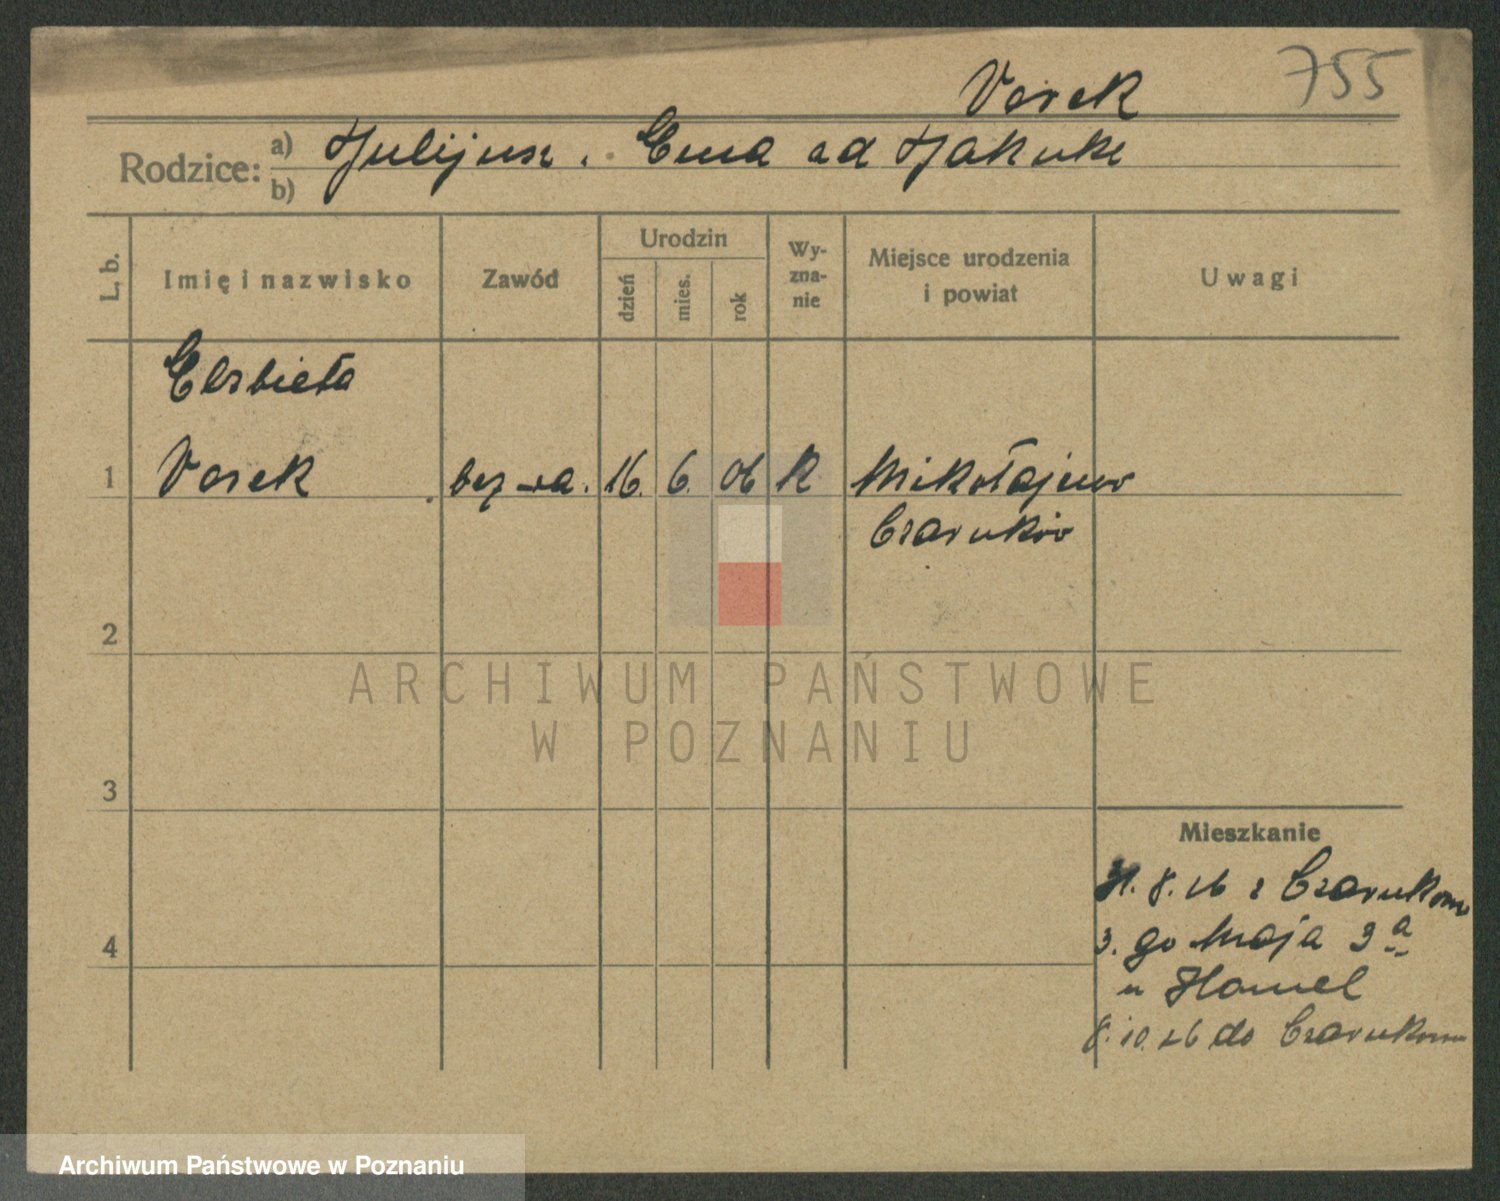 Vorek 755
Rodzice: a) Julijusz. Ema
b)
L, b. Imię i nazwisko Zawód Urodzin dzień mies. rok Wy-zna-nie Miejsce urodzenia i powiat Uwagi
Elzbieta
1 Vorek bez 16. 6. 06 K Mikołajewo
Czarnków
2
ARCHIWUM PAŃSTWOWE
W POZNANIU
3
Mieszkanie
31. 8. 26 z Czarnkowa
3. go Maja 3a
4
u Hamel
8. 10. 26 do Czarnkowa
Archiwum Państwowe w Poznaniu